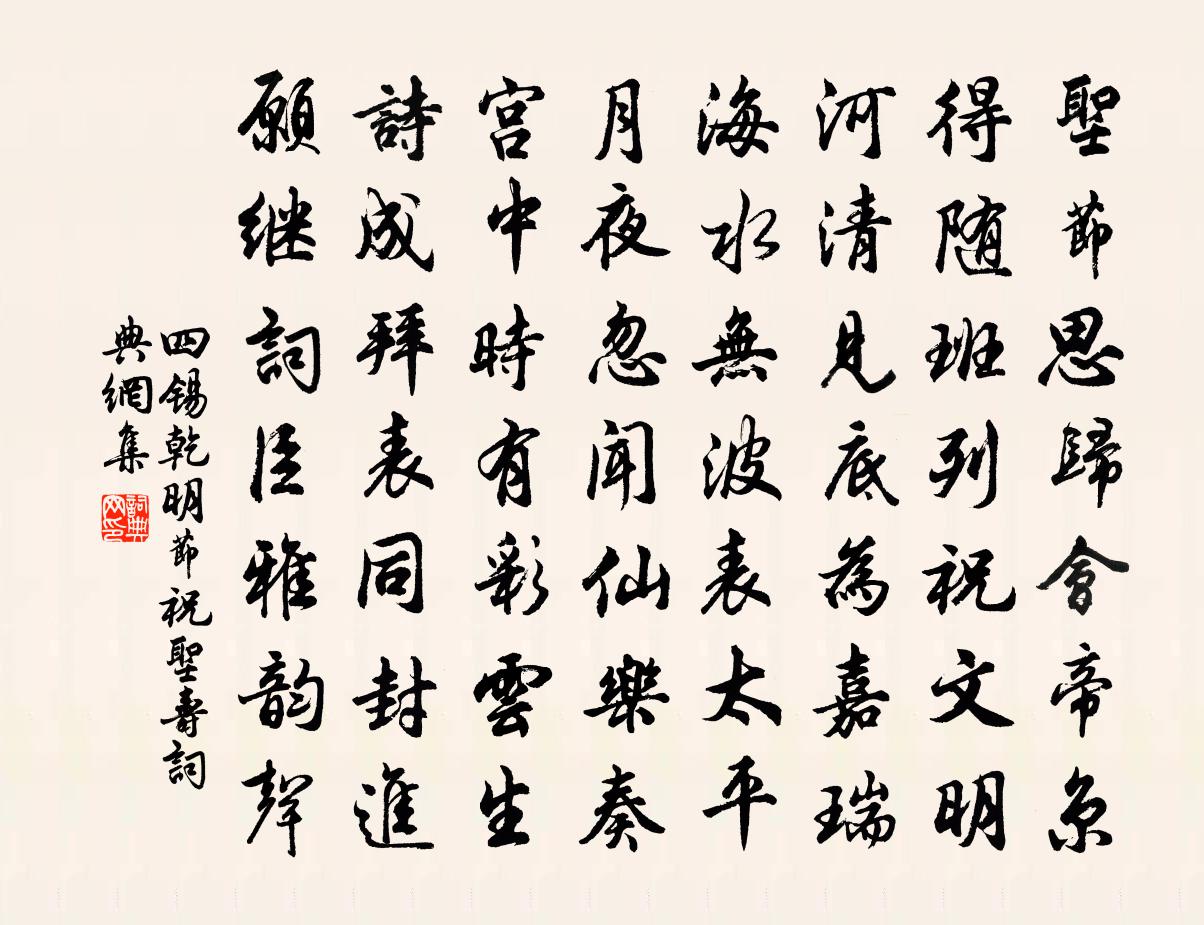 聖節思歸會帝京
得随班列祝文明
河清見底為嘉瑞
海水無波表太平
月夜忽聞仙樂奏
宮中時有彩雲生
詩成拜表同封進
願継詞臣雅韵聲
四錫乾明節祝聖壽詞
典網集
詞典
网印